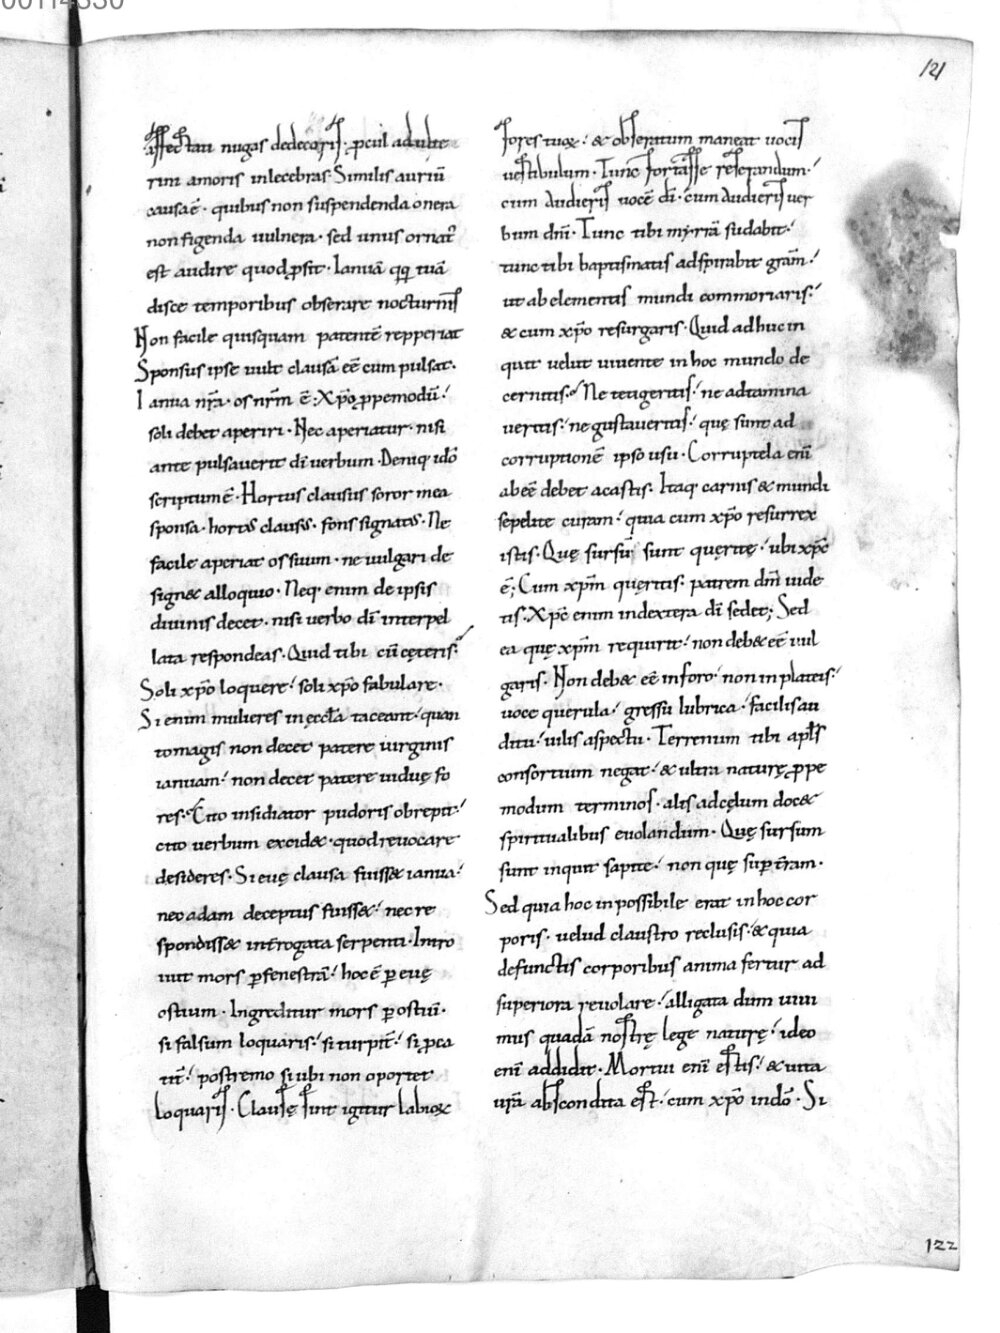 00114330
121
affectan nugas dedecoris· ꝓcul adulte
rini amoris inlecebras· Similis auriū
causa ē· quibus non suspendenda onera
non figenda uulnera· sed unus ornat᷒
est audire quod ꝓsit· Ianuā qq; tuā
disce temporibus obserare nocturnis
Non facile quisquam patentē repperiat
Sponsus ipse uult clausā eē cum pulsat·
Ianua nr̄a· os nr̄m ē· Xp̄o ꝓpemodū·
soli debet aperiri· Nec aperiatur· nisi
ante pulsauerit dī uerbum· Deniq; idō
scriptum ē· Hortus clausus soror mea
sponsa· hortus clausus· fons signatus· Ne
facile aperiat os suum· ne uulgari de
signet alloquio· Neq· enim de ipsis
diuinis decet· nisi uerbo dī interpel
lata respondeas· Quid tibi cū cęteris·
Soli xp̄o loquere· soli xp̄o fabulare·
Si enim mulieres in ęccl̄a taceant· quan
to magis non decet patere uirginis
ianuam· non decet patere uiduę fo
res· Cito insidiator pudoris obrepit·
cito uerbum excidet· quod reuocare
desideres· Si euę clausa fuisset ianua·
nec adam deceptus fuisset· nec re
spondisset int̄rogata serpenti· Intro
iuit mors ꝑ fenestrā· hoc ē ꝑ euę
ostium· Ingreditur mors ꝑ ostiū·
si falsum loquaris· si turpit̄· si ꝓca
cit̄· postremo si ubi non oportet
loquaris· Clausę sint igitur labiorum
fores tuorum· & obseratum maneat uocis
uestibulum· Tunc fortasse reserandum·
cum audieris uocē dī· cum audieris uer
bum dn̄i· Tunc tibi myrrā sudabit·
tunc tibi baptismatis adspirabit gr̄am·
ut ab elementis mundi commoriaris·
& cum xp̄o resurgaris· Quid adhuc in
quit uelut uiuente in hoc mundo de
cernitis· Ne tetigeritis· ne adtamina
ueritis· ne gustaueritis· quę sunt ad
corruptionē ipso usu· Corruptela enī
abeē debet a castis· Itaq· carnis & mundi
sepelite curam· quia cum xp̄o resurrex
istis· Quę sursū sunt quęrite· ubi xp̄c
ē; Cum xp̄m quęritis· patrem dn̄i uide
tis· Xp̄c enim in dextera dī sedet; Sed
ea quę xp̄m requirit· non debet eē uul
garis· Non debet eē in foro· non in plateis·
uoce querula· gressū lubrica· facilis au
ditu· uilis aspectu· Terrenum tibi apl̄s
consortium negat· & ultra naturę ꝓpe
modum terminos· alis ad cęlum docet
spiritualibus euolandum· Quę sursum
sunt inquit sapite· non quę suꝑ t̄ram·
Sed quia hoc inpossibile erat in hoc cor
poris· uelud claustro reclusis· & quia
defunctis corporibus anima fertur ad
superiora reuolare· alligata dum uiui
mus quadā nostrę lege naturę· ideo
enī addidit· Mortui enī estis· & uita
ur̄a abscondita est· cum xp̄o in dō· Si
122